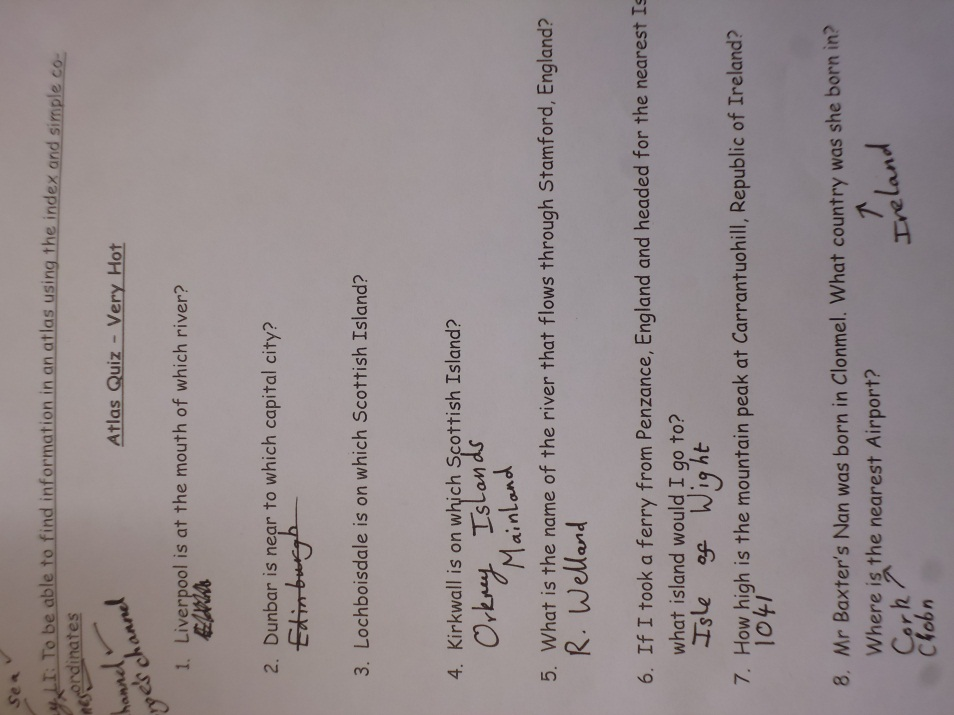 sea
LI: To be able to find information in an atlas using the index and simple co-
ordinates
hannel
ge's channel
Atlas Quiz - Very Hot
1. Liverpool is at the mouth of which river?
2. Dunbar is near to which capital city?
Edinburgh
3. Lochboisdale is on which Scottish Island?
4. Kirkwall is on which Scottish Island?
Orkney Islands
Mainland
5. What is the name of the river that flows through Stamford, England?
R. Welland
6. If I took a ferry from Penzance, England and headed for the nearest Is
what island would I go to?
Isle of Wight
7. How high is the mountain peak at Carrantuohill, Republic of Ireland?
1041
8. Mr Baxter's Nan was born in Clonmel. What country was she born in?
Ireland
Where is the nearest Airport?
Cork